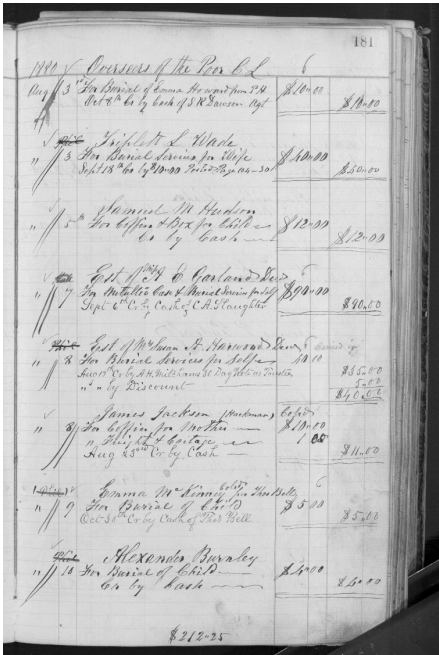 181
1880 Overseers of the Poor C L
Aug 3rd For Burial of Emma Howard from P.H $10.00
Oct 8th Cr by Cash of S R Dawson Agt $10.00
Triplett L Wade
" 3 For Burial Service for Wife $40.00
Sept 18th Cr by $10.00 Posted Page 104-30 $40.00
Samuel M Hudson
" 5th For Coffin & Box for Child $12.00
Cr by Cash $12.00
Est of A E Garland Decd
" 7 For Metallic Case & Burial Service for Self $90.00
Sept 6th Cr by Cash of C A Slaughter $90.00
Est of Mrs Susan A. Harwood Decd
" 8 For Burial Services for Self 40.00
Cr by A H $35.00
" " by Discount 5.00
$40.00
James Jackson (Huckman) Cold
" 8 For Coffin for Mother $10.00
" Freight & Cartage 1
Aug 23rd Cr by Cash $11.00
Emma McKinney Cold for Thos Bell
" 9 For Burial of Child $5.00
Oct 30th Cr by Cash of Thos Bell $5.00
Alexander Burnley
" 10 For Burial of Child $4.00
Cr by Cash $4.00
$212.25